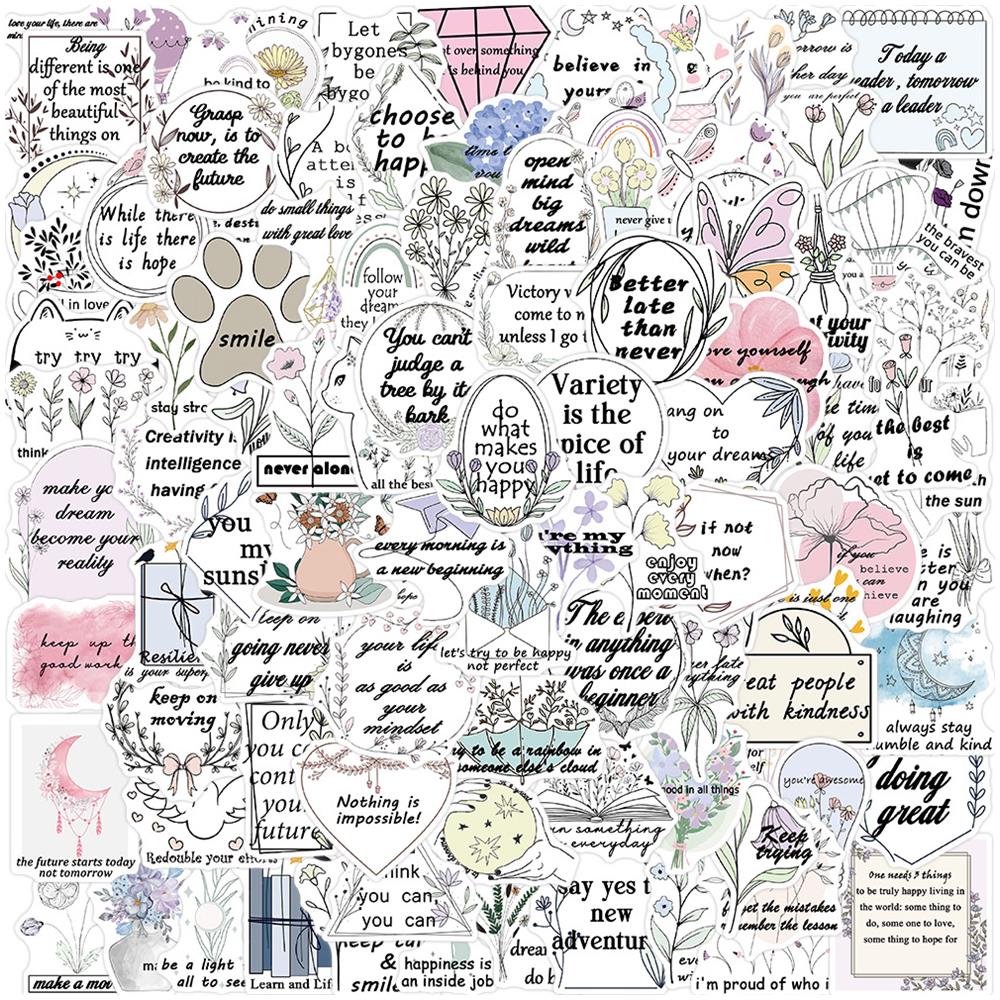 love your life, there are
Being
different is one
of the most
beautiful
things on
be kind to
Grasp
now, is to
create the
future
Let
bygones
be
bygo
t over something
is behind you
believe in
yours
choose
to
happ
time t
you
A b
atte
is
open
mind
big
dreams
wild
orrow is
her day
you are perfec
Today a
eader, tomorrow
a leader
n down
the bravest
you can be
While there
is life there
is hope
do small things
with great love
follow
your
dream
they
l in love
try try try
smile
You can't
judge a
tree by it
bark
Victory w
come to n
unless I go t
never give u
Better
late
than
never
ove yourself
t your
vity
you a
think
stay stro
Creativity i
intelligence
having
never alone
all the bes
do
what
makes
you
happy
Variety
is the
pice of
life
ang on
to
your dreams
have
e tim
of you
life
the best
is
et to come
the sun
make yo
dream
become your
reality
you
my
suns
every morning is
a new beginning
hope
're my
ything
enjoy
every
moment
if not
now
when?
if you
believe
can
hieve
e is
n you
are
laughing
e is just one
keep up th
good work
Resilie
is your super
keep on
going never
give up
your life
is
as good as
your
mindset
let's try to be happy
not perfect
The e per
in anything
was once a
beginner
ver late
ything
eat people
with kindness
always stay
umble and kind
keep on
moving
Only
you c
cont
you
future
Nothing is
impossible!
y to be a rainbow in
someone else's cloud
for
elf
ood in all things
you're awesome
doing
great
n something
everyday
Keep
trying
the future starts today
not tomorrow
Redouble your efforts
hink
you can,
you can
say yes t
new
adventur
et the mistakes
ember the lesson
One needs 3 things
to be truly happy living in
the world: some thing to
do, some one to love,
some thing to hope for
make a mo
be a light
all to see
Learn and Lif
keep cal
&
smile
happiness is
an inside job
drea
do b
ev
wi
i'm proud of who i